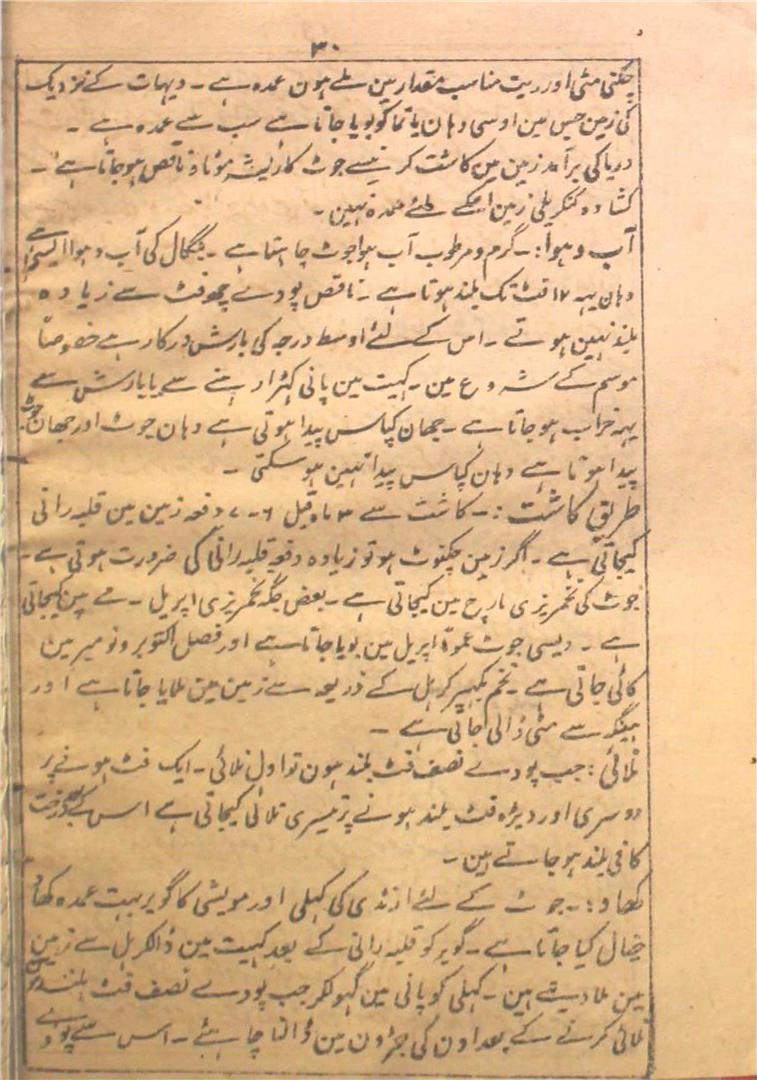 ۳۰
چکنی مٹی اور ریت مناسب مقدار مین ملے ہون عمدہ ہے ۔ دیہات کے نزدیک
کی زمین جس مین اوسی دہان یا تماکو بویا جاتا ہے سب سے عمدہ ہے ۔
دریا کی برآمد زمین مین کاشت کرنیسے جوٹ کا ریشہ موٹا و ناقص ہو جاتا ہے ۔
کشادہ کنکریلی زمین اسکے لئے عمدہ نہین ۔
آب و ہوا :۔ گرم و مرطوب آب ہوا جوٹ چاہتا ہے ۔ بنگال کی آب و ہوا ایسی ہے
وہان یہہ ۱۷ فٹ تک بلند ہوتا ہے ۔ ناقص پودے چھ فٹ سے زیادہ
بلند نہین ہوتے ۔ اس کے لئے اوسط درجہ کی بارش درکار ہے خصوصاً
موسم کے شروع مین ۔ کہیت مین پانی کہڑا رہنے سے یا بارش سے
یہہ خراب ہو جاتا ہے ۔ جہان کپاس پیدا ہوتی ہے وہان جوٹ اور جہان جوٹ
پیدا ہوتا ہے وہان کپاس پیدا نہین ہو سکتی ۔
طریق کاشت :۔ کاشت سے ۳ ماہ قبل ۶ ۔ ۷ دفعہ زمین مین قلبہ رانی
کیجاتی ہے ۔ اگر زمین چکنوٹ ہو تو زیادہ دفعہ قلبہ رانی کی ضرورت ہوتی ہے ۔
جوٹ کی تخمریزی مارچ مین کیجاتی ہے ۔ بعض جگہ تخمریزی اپریل ۔ مے مین کیجاتی
ہے ۔ دیسی جوٹ عموماً اپریل مین بویا جاتا ہے اور فصل اکتوبر و نومبر مین
کاٹی جاتی ہے تخم بکہیر کر ہل کے ذریعہ سے زمین مین ملایا جاتا ہے اور
سے مٹی ڈالی جاتی ہے ۔
نلائی : جب پودے نصف فٹ بلند ہون تو اول نلائی ۔ ایک فٹ ہونے پر
دوسری اور ڈیڑہ فٹ بلند ہونے پر تیسری نلائی کیجاتی ہے اس کے بعد درخت
کافی بلند ہو جاتے ہین ۔
کھاد :۔ جوٹ کے لئے ارنڈی کی کہلی اور مویشی کا گوبر بہت عمدہ کھاد
خیال کیا جاتا ہے ۔ گوبر کو قلبہ رانی کے بعد کہیت مین ڈالکر ہل سے زمین
مین ملا دیتے ہین ۔ کہلی کو پانی مین گہولکر جب پودے نصف فٹ بلند ہون
نلائی کرنے کے بعد اون کی جڑون مین ڈالنا چاہئے ۔ اس سے پودے